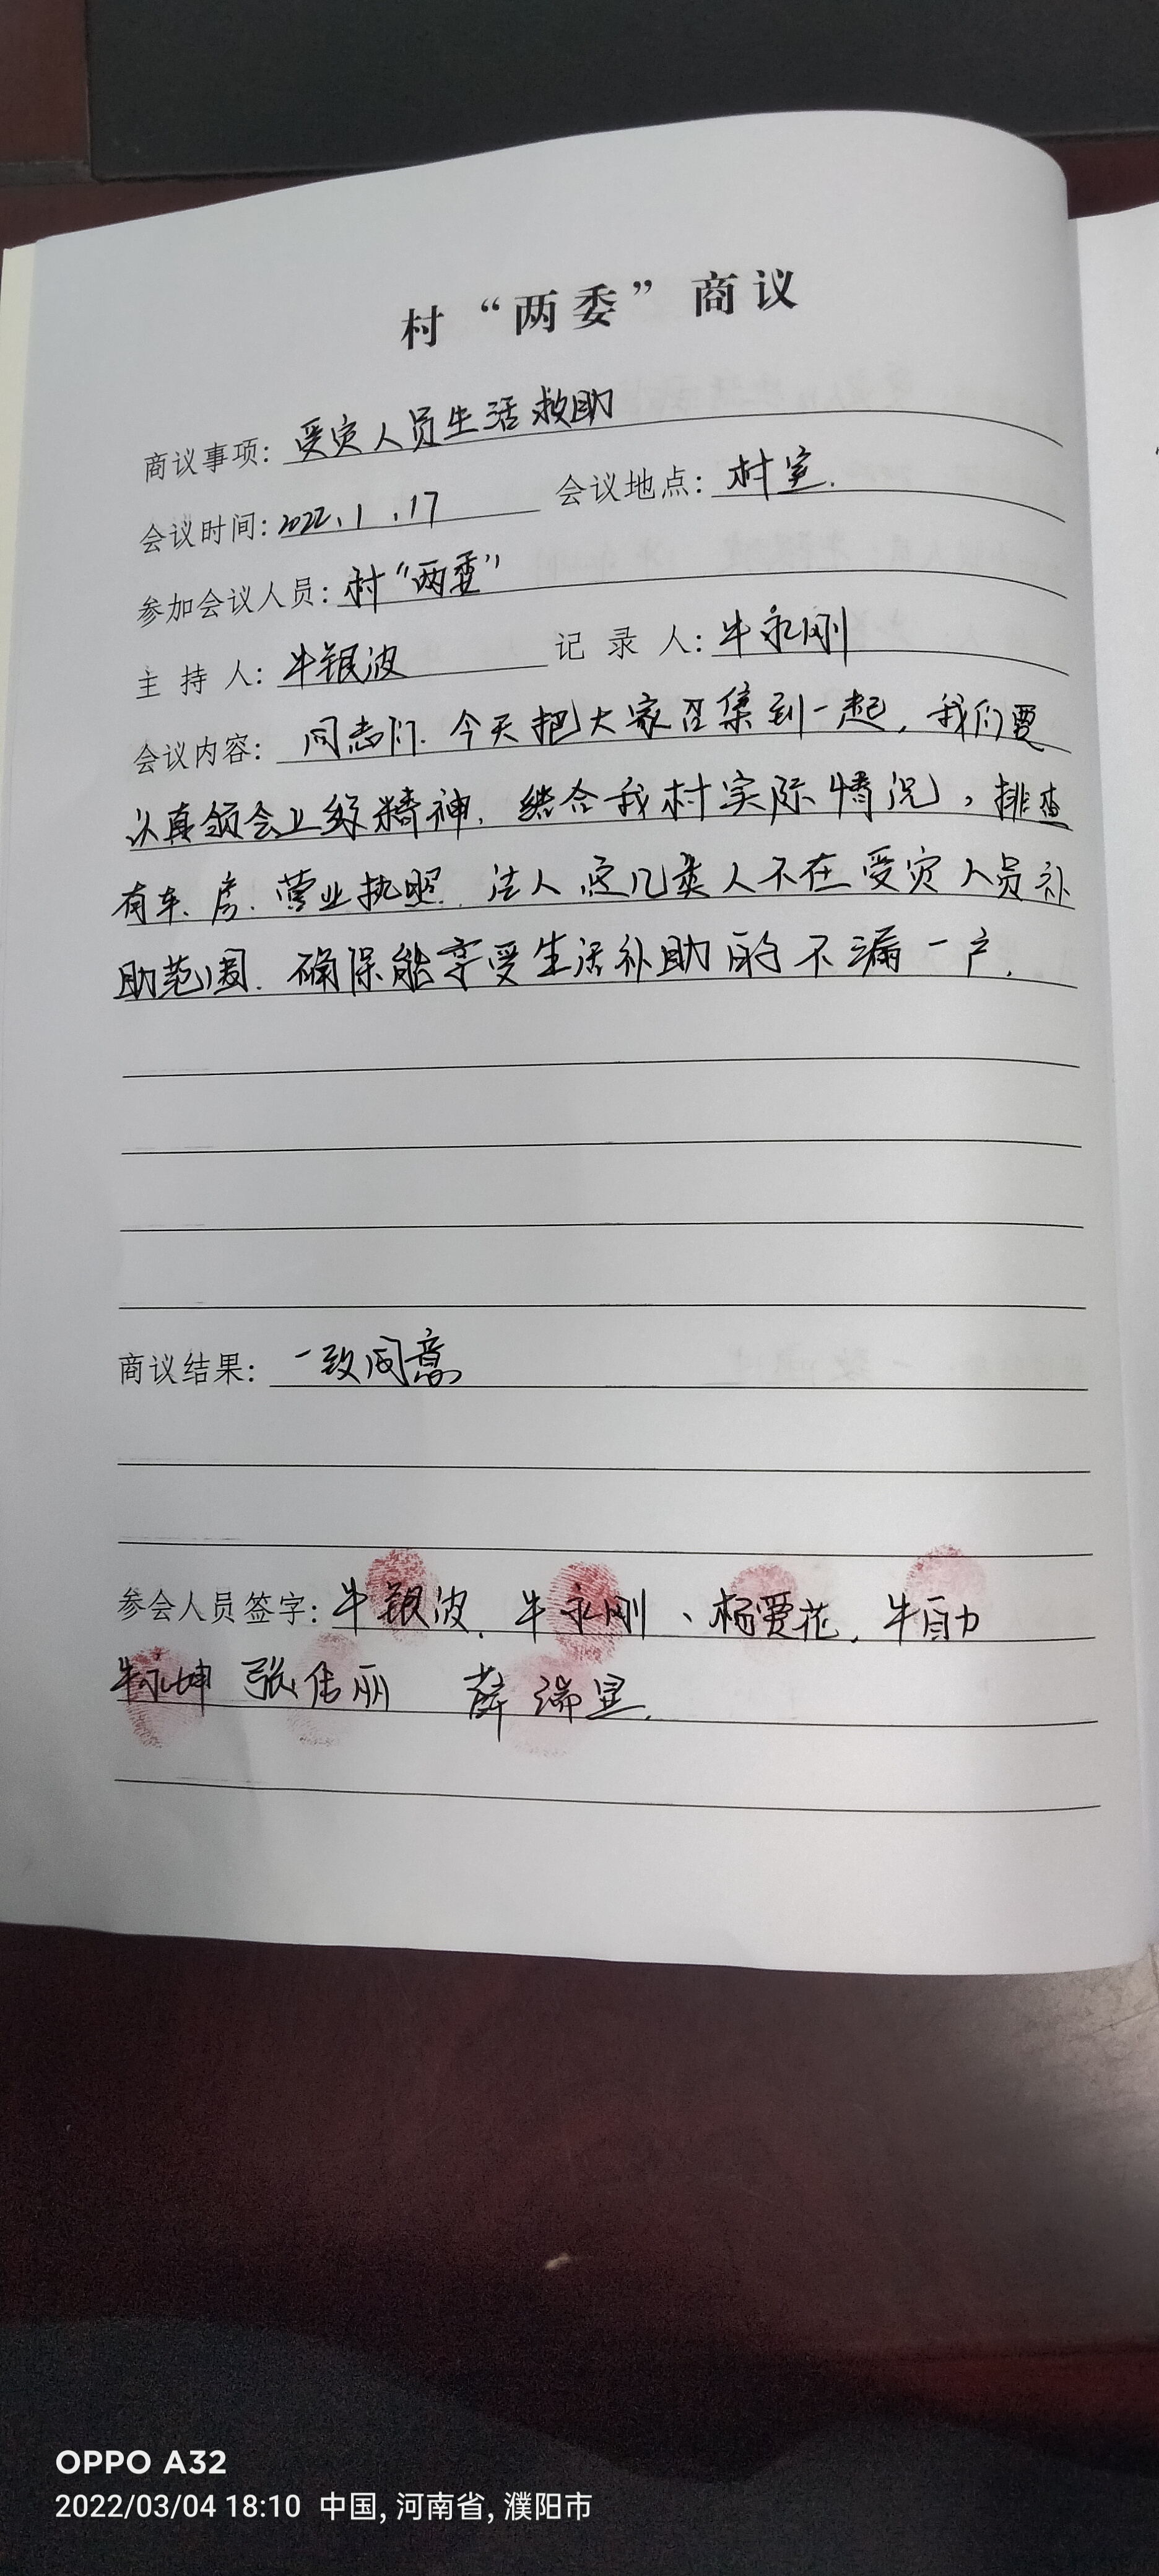 村“两委”商议
商议事项: 受灾人员生活救助
会议时间: 2022.1.17 会议地点: 村室.
参加会议人员: 村“两委”
主持人: 牛银波 记录人: 牛永刚
会议内容: 同志们. 今天把大家召集到一起, 我们要
认真领会上级精神. 结合我村实际情况, 排查
有车、房. 营业执照. 法人 这几类人不在受灾人员补
助范围. 确保能享受生活补助的不漏一户.
商议结果: 一致同意
参会人员签字: 牛银波. 牛永刚、杨爱花. 牛自力
牛永坤 张佳丽 薛瑞
OPPO A32
2022/03/04 18:10 中国, 河南省, 濮阳市